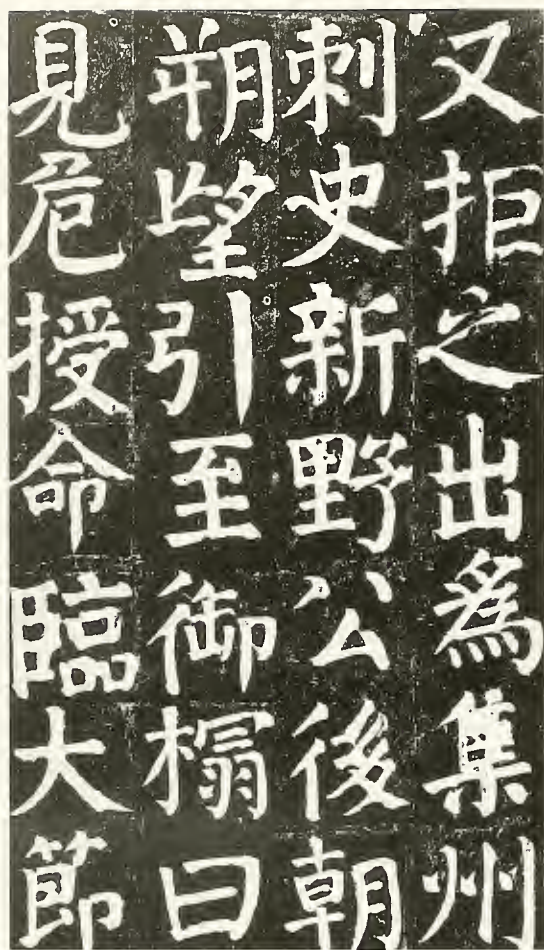 又拒之出為集州
刺史新野公後朝
朔望引至御榻曰
見危授命臨大節